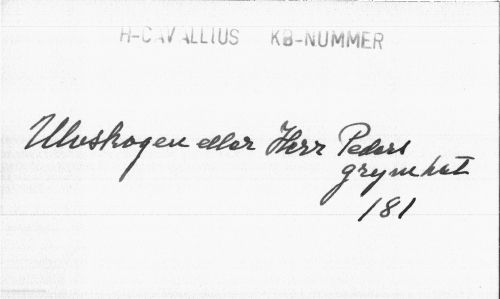 H-CAVALLIUS KB-NUMMER
Ulvskogen eller Herr Peders
grymhet
181